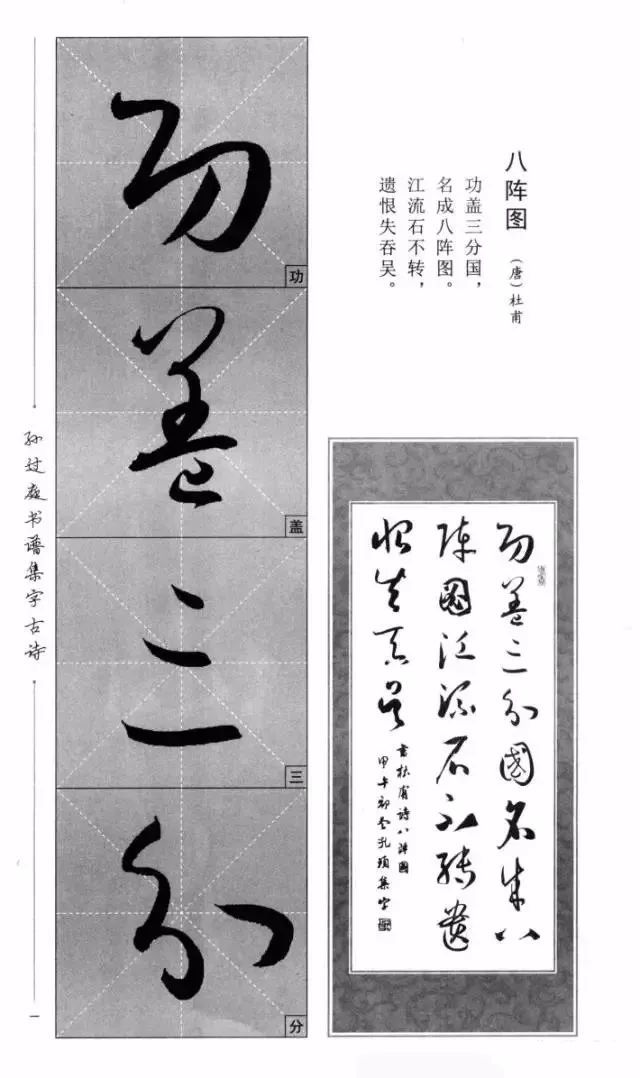 八阵图
（唐）杜甫
功盖三分国，
名成八阵图。
江流石不转，
遗恨失吞吴。
功盖三分國名成八
阵圖江流石不转遗
恨失吞吴
书杜甫诗八阵图
甲午初冬集字
功
盖
三
分
功
盖
三
分
孙过庭书谱集字古诗
一